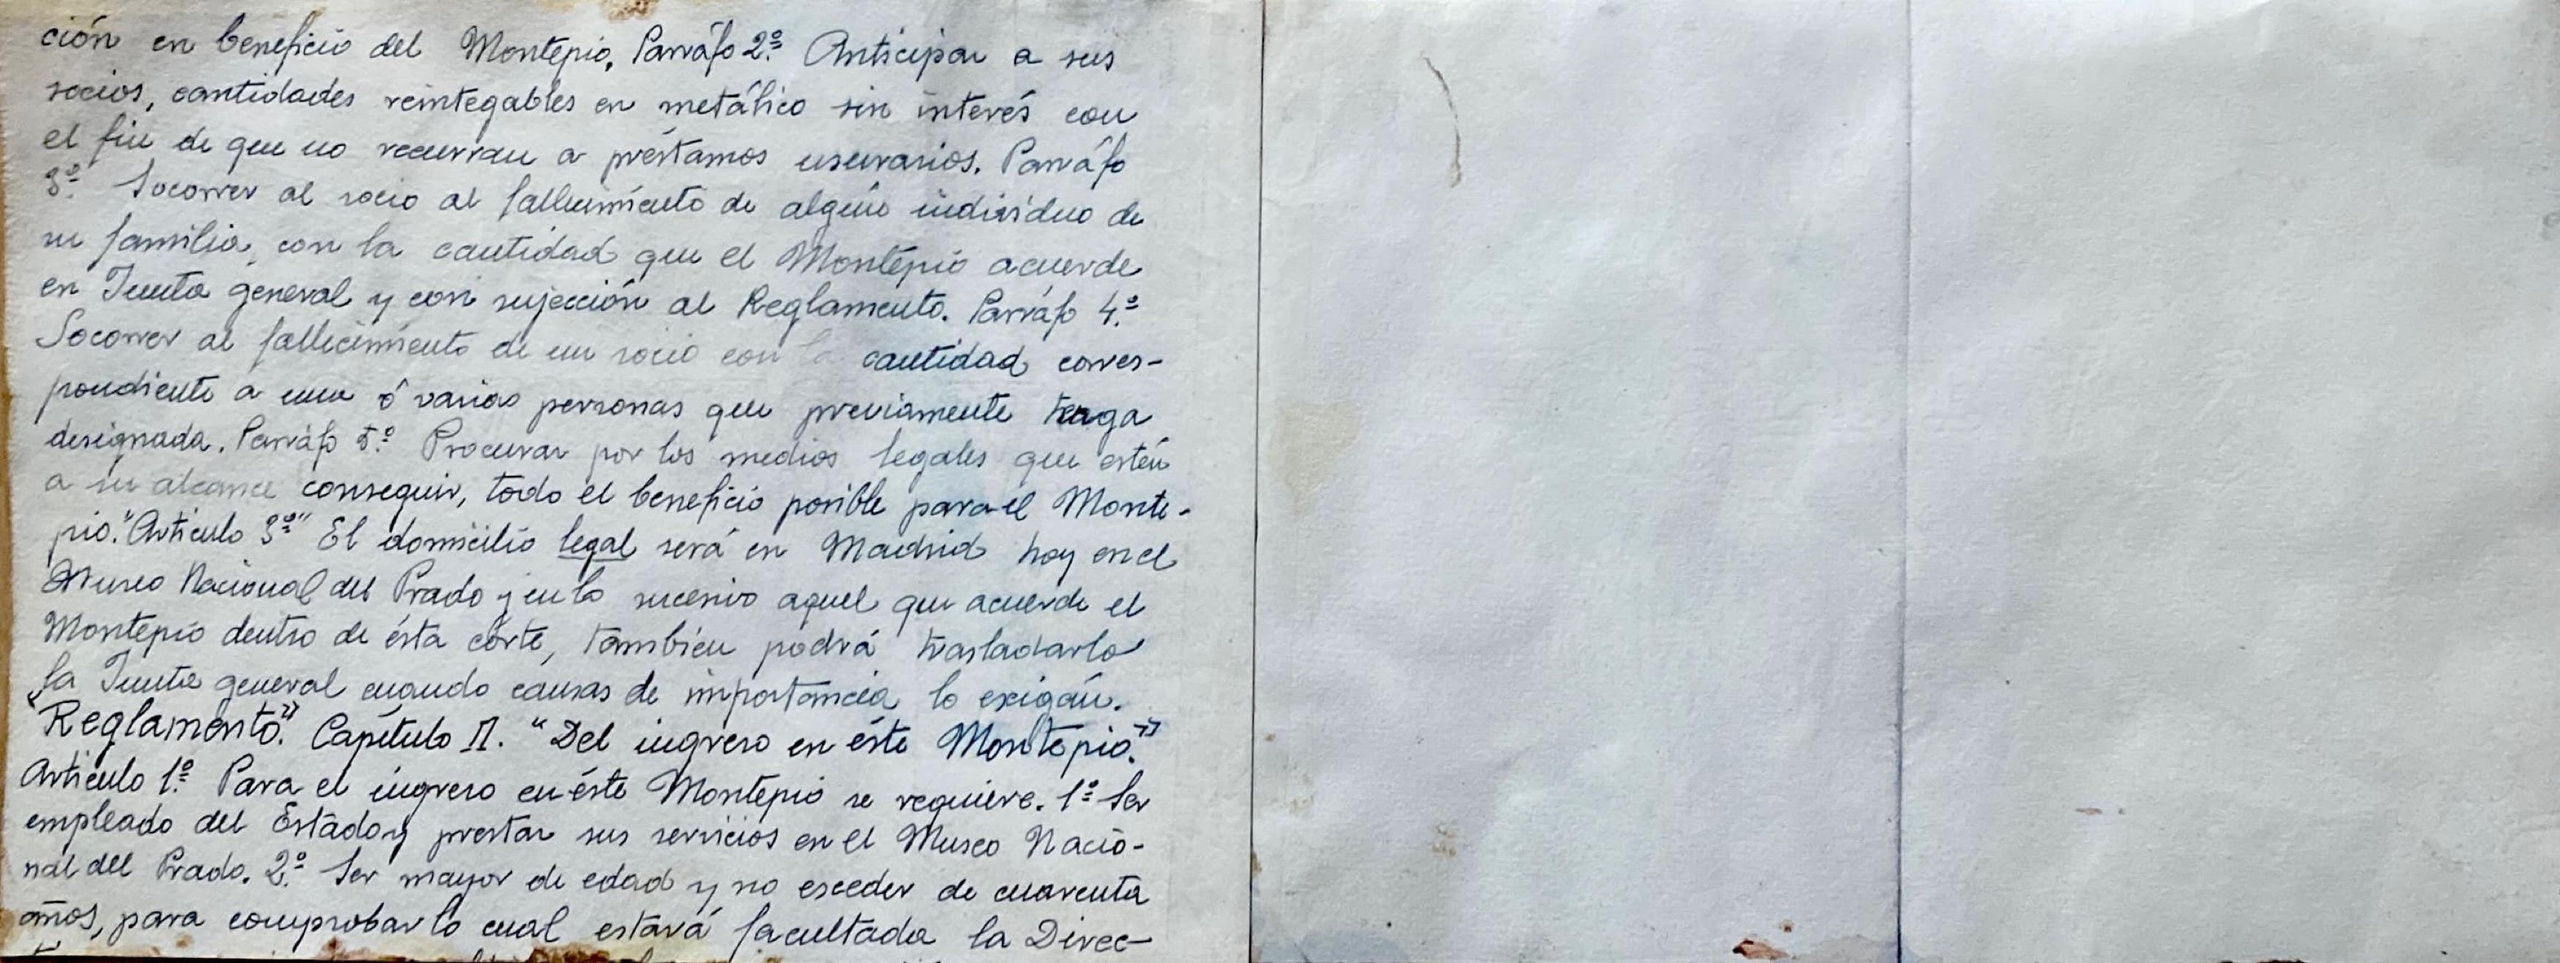 ción en beneficio del Montepio, Parráfo 2º. Anticipar a sus
socios, cantidades reintegables en metálico sin interés con
el fin de que no recurran a préstamos usurarios. Parráfo
3º. Socorrer al socio al fallecimiento de algún individuo de
su familia, con la cantidad que el Montepio acuerde
en Junta general y con sujección al Reglamento. Parráfo 4.º
Socorrer al fallecimiento de un socio con la cantidad corres-
pondiente a una ó varias personas que previamente tenga
designada. Parráfo 5º. Procurar por los medios legales que estén
a su alcance conseguir, todo el beneficio posible para el Monte-
pio. "Articulo 3º" El domicilio legal será en Madrid hoy en el
Museo Nacional del Prado y en lo sucesivo aquel que acuerde el
Montepio dentro de ésta corte, también podrá trasladarlo
la Junta general cuando causas de importancia lo exigán.
"Reglamento". Capítulo II. "Del ingreso en éste Montepio."
Articulo 1º. Para el ingreso en éste Montepio se requiere. 1º Ser
empleado del Estado y prestar sus servicios en el Museo Nacio-
nal del Prado. 2º. Ser mayor de edad y no esceder de cuarenta
años, para comprobar lo cual estará facultada la Direc-